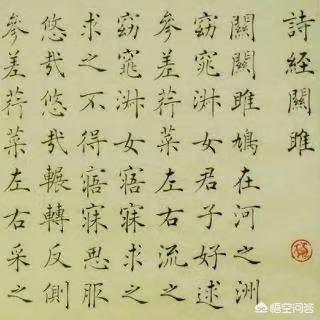 詩經關雎
關關雎鳩在河之洲
窈窕淑女君子好逑
參差荇菜左右流之
窈窕淑女寤寐求之
求之不得寤寐思服
悠哉悠哉輾轉反側
參差荇菜左右采之
悟空问答